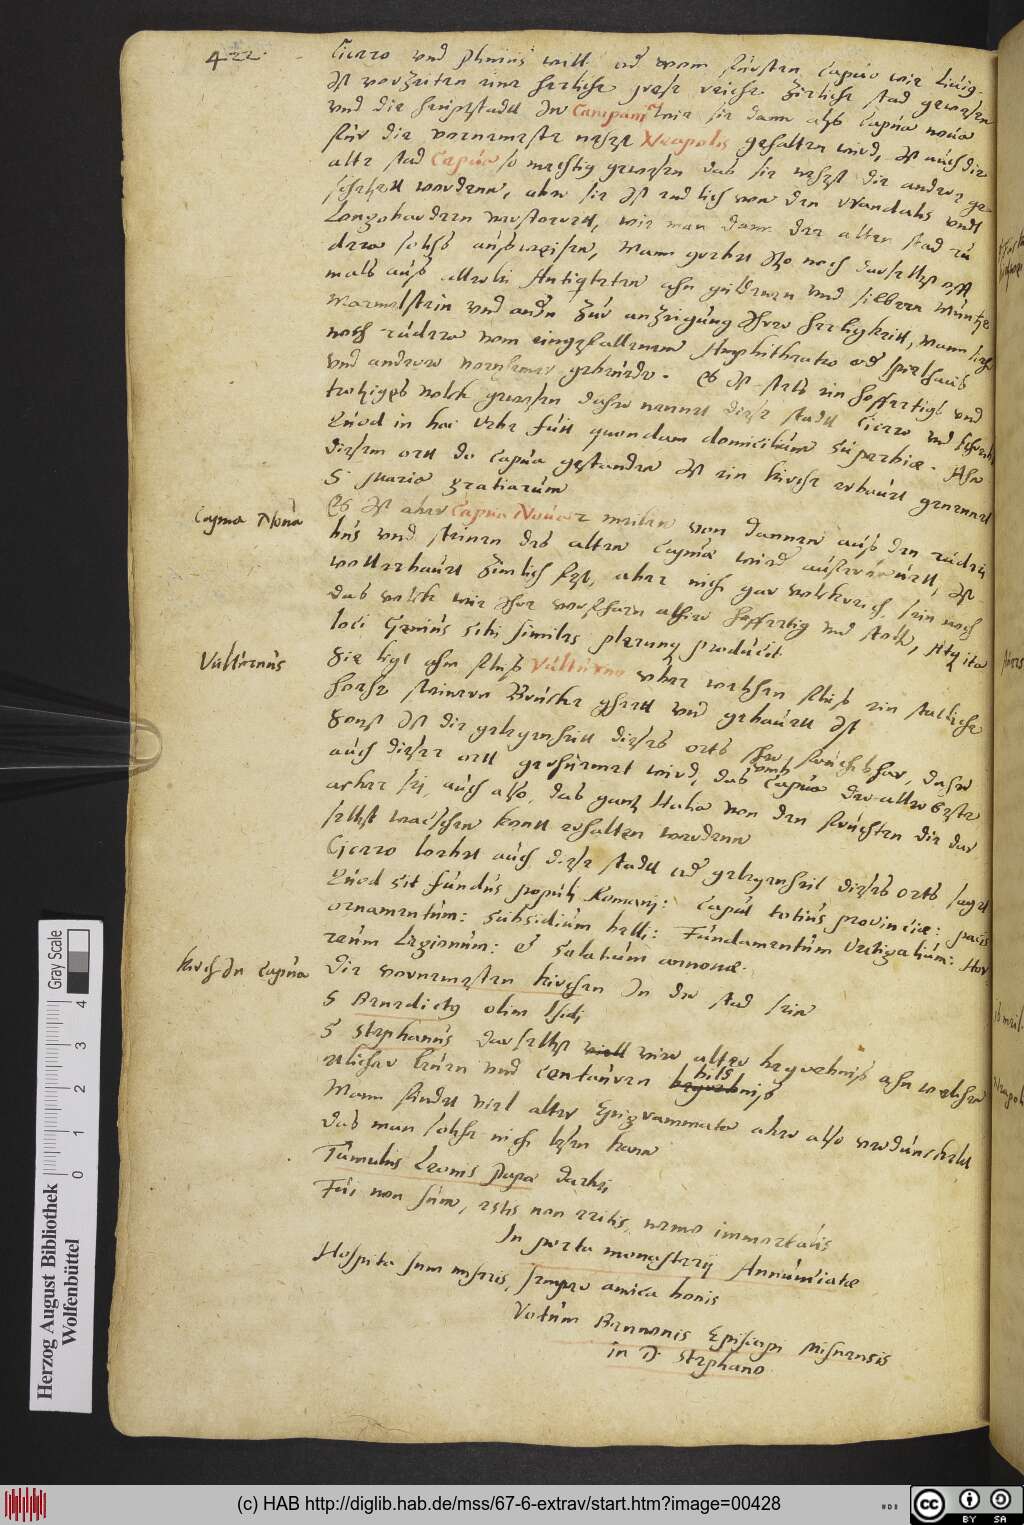 422.
Cicero und Plinius will
ist vorzeiten eine herliche große reiche zierliche stad gewesen
und die hauptstadt In Campania wie sie dann alß Capua noua
für die vornemeste nehest Neapolis gehalten wird, ist auch die
alte stad Capua so mechtig gewesen das sie nehest die andere ge-
schetzett wordenn, aber sie ist endlich von den Wandalis undt
Longobardern verstorett, wie man dann der alten stad
mals auß allerlei Antiqiteten ahn guldenen und silbern Müntze
Marmelstein und andern zur anzeigung Ihrer herligkeitt,
noch rudera vom eingefallenem Amphitheatro oder spielhaus
und andern vornehmen gebeude. Es ist stets ein hoffertigs und
trotziges volck gewesen daher nennett diese stadt Cicero und
Quod in hac Urbe fuit quondam domicilium superbiæ. Ahn
diesem ortt do Capua gestanden ist ein kirche erbauet genennet
S Maria gratiarum
Capua Noua
Es ist aber Capua Noua 2 meilen von dannen auß den
und steinen des alten Capuæ wider
woll erbauett zimlich fest, aber nich gar volckreich, sein noch
das volck wie Ihre vorfharn alhier hoffertig und stoltz, Atq ita
loci Genius sibi similes plerunq producit.
Vulturnus
Sie ligt ahm fluß Vulturno uber welchen fluß ein stattliche
hoche steinern Brucke gehett und gebauett ist
Sonst ist die gelegenheitt dieses orts sehr fruchtbar, daher
auch dieser ortt geruhmet wird, das umb Capua der aller beste
acker sei, auch also, das gantz Italia von den fruchten die dar
selbst wachschen kontt erhalten werdenn
Cicero lobett auch diese stadt und gelegenheit dieses orts saget
Quod sit fundus populi Romani: Caput totius provinciæ: pacis
ornamentum: Subsidium belli: Fundamentum Vectigalium: Hor-
reum Legionum: et Solatium annonæ.
Kirch In Capua
Die vornemesten kirchen In der stad sein
S Benedicty olim Isidi
S Stephanus daselbst viell vier alter begrebniß ahn welchen
etlicher Leuen und Centauren begrebniß bildniß
Mann findet viel alter Epigrammata aber also verdunckelt
das man solche nich lesen kann
Tumulus Leonis Papa daselbs
Fui, non sum, estis non eritis, nemo immortalis
In porta monasterij Annunciatæ
Hospita sum miseris, semper amica bonis
Votum Bennonis Episcopi Misnensis
in D. Stephano
Herzog August Bibliothek
Wolfenbüttel
Gray Scale
0 1 2 3 4
(c) HAB http://diglib.hab.de/mss/67-6-extrav/start.htm?image=00428
cc BY SA